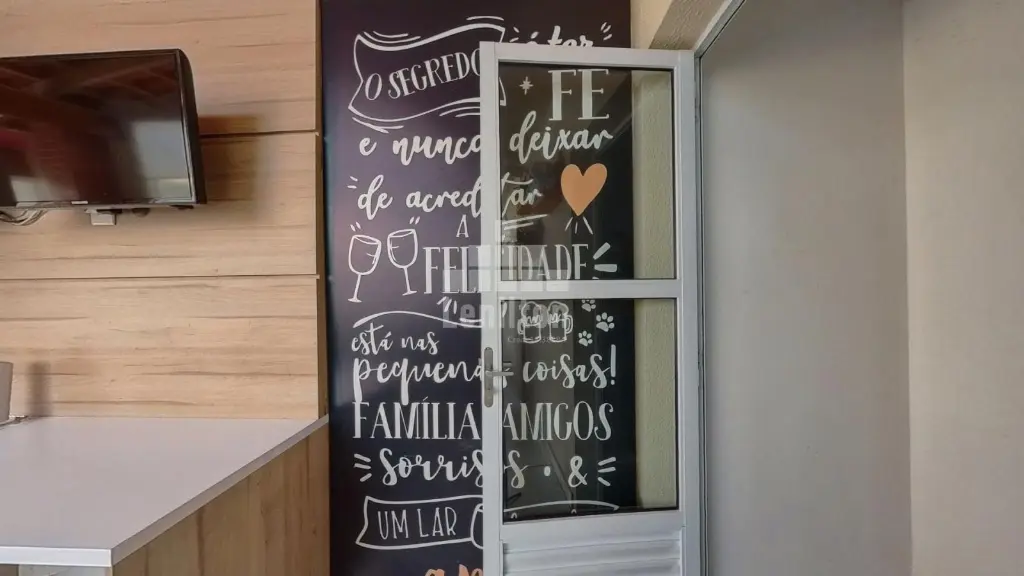 O SEGREDO
FÉ
e nunca deixar
de acreditar
A
FELICIDADE
está nas
pequenas coisas!
FAMÍLIA AMIGOS
sorrisos • &
UM LAR